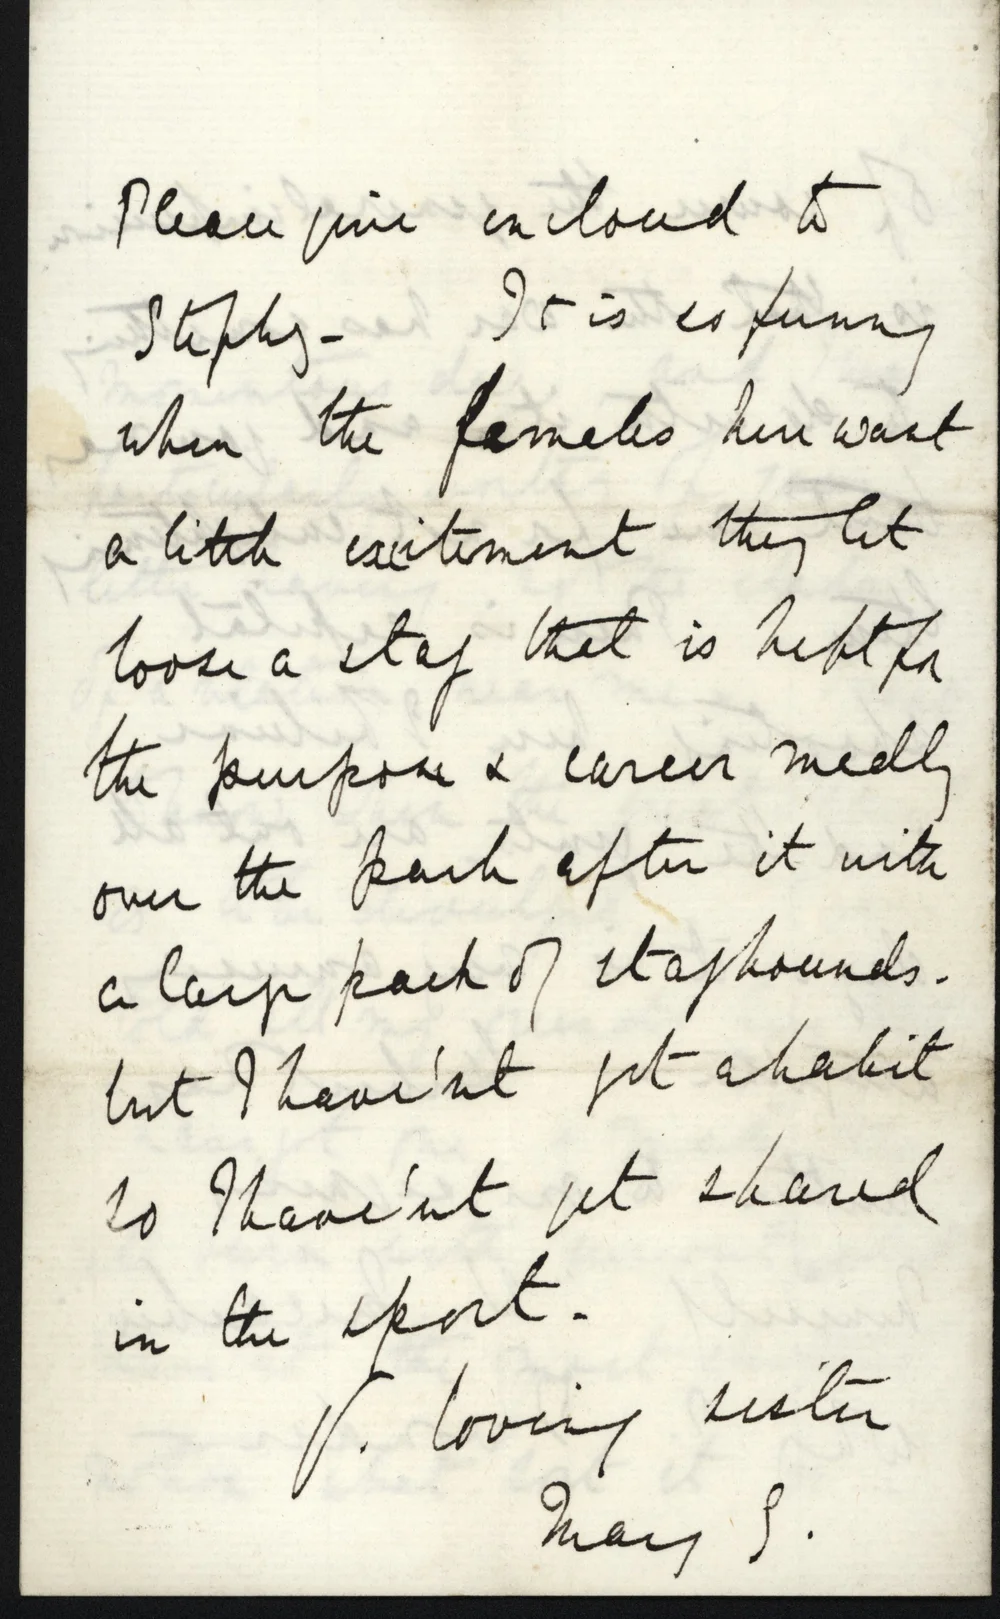 Please give enclosed to
Stephy - It is so funny
when the females here want
a little excitement they let
loose a stag that is kept for
the purpose & career madly
over the park after it with
a large pack of staghounds.
but I have'nt got a habit
so I have'nt yet shared
in the sport.
Y. loving sister
Mary G.